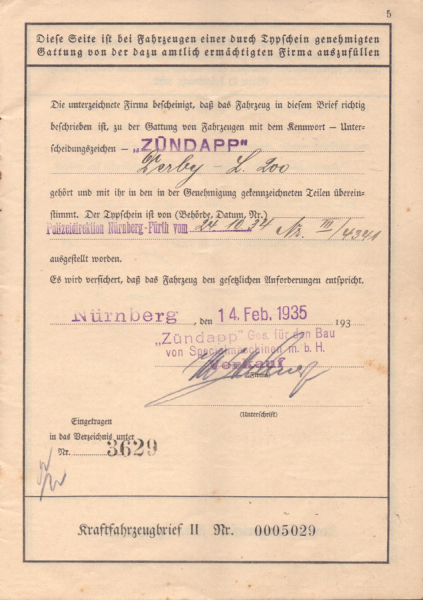 5
Diese Seite ist bei Fahrzeugen einer durch Typschein genehmigten
Gattung von der dazu amtlich ermächtigten Firma auszufüllen
Die unterzeichnete Firma bescheinigt, daß das Fahrzeug in diesem Brief richtig
beschrieben ist, zu der Gattung von Fahrzeugen mit dem Kennwort – Unter-
scheidungszeichen – „ZÜNDAPP"
Derby - L. 200
gehört und mit ihr in den in der Genehmigung gekennzeichneten Teilen überein-
stimmt. Der Typschein ist von (Behörde, Datum, Nr.)
Polizeidirektion Nürnberg-Fürth vom 24.10.34 Nr. III/4346
ausgestellt worden.
Es wird versichert, daß das Fahrzeug den gesetzlichen Anforderungen entspricht.
Nürnberg, den 14. Feb. 1935 193
„Zündapp" Ges. für den Bau
von Spezialmaschinen m. b. H.
Verkauf
(Firma)
(Unterschrift)
Eingetragen
in das Verzeichnis unter
Nr. 3629
Kraftfahrzeugbrief II Nr. 0005029